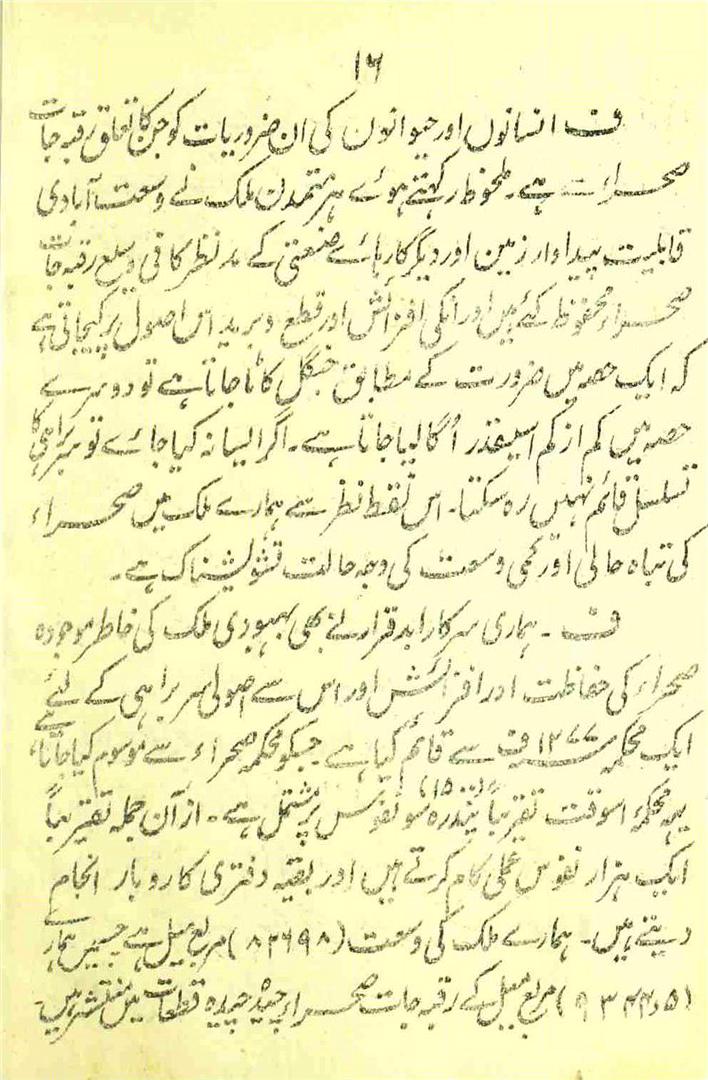 ۱۶
ف انسانوں اور حیوانوں کی ان ضروریات کو جن کا تعلق رقبہ جات
صحراء سے ہے۔ ملحوظ رکھتے ہوے ہر متمدن ملک نے وسعت آبادی
قابلیت پیداوار زمین اور دیگر کارہائے صنعتی کے مدنظر کافی وسیع رقبہ جات
صحراء محفوظ کئے ہیں اور انکی افزائش اور قطع و برید اس اصول پر کیجاتی ہے
کہ ایک حصہ میں ضرورت کے مطابق جنگل کاٹا جاتا ہے تو دوسرے
حصہ میں کم از کم اسیقدر اُگا لیا جاتا ہے۔ اگر ایسا نہ کیا جائے تو سربراہی کا
تسلسل قائم نہیں رہ سکتا۔ اس نقطۂ نظر سے ہمارے ملک میں صحراء
کی تباہ حالی اور کمی وسعت کی وجہ حالت تشویشناک ہے۔
ف ۔ ہماری سرکار ابد قرار نے بھی بہبودی ملک کی خاطر موجودہ
صحراء کی حفاظت اور افزائش اور اس سے اصولی سربراہی کے لئے
ایک محکمہ ۱۲۷۷ ف سے قائم کیا ہے جسکو محکمہ صحراء سے موسوم کیا جاتا،
یہہ محکمہ اسوقت تقریباً پندرہ سو (۱۵۰۰) نفوس پر مشتمل ہے۔ از آن جملہ تقریباً
ایک ہزار نفوس عملی کام کرتے ہیں اور بقیہ دفتری کاروبار انجام
دیتے ہیں۔ ہمارے ملک کی وسعت (۸۲۶۹۸) مربع میل ہے جسمیں ہمارے
مربع میل کے رقبہ جات صحراء چیدہ چیدہ قطعات میں منتشر ہیں۔